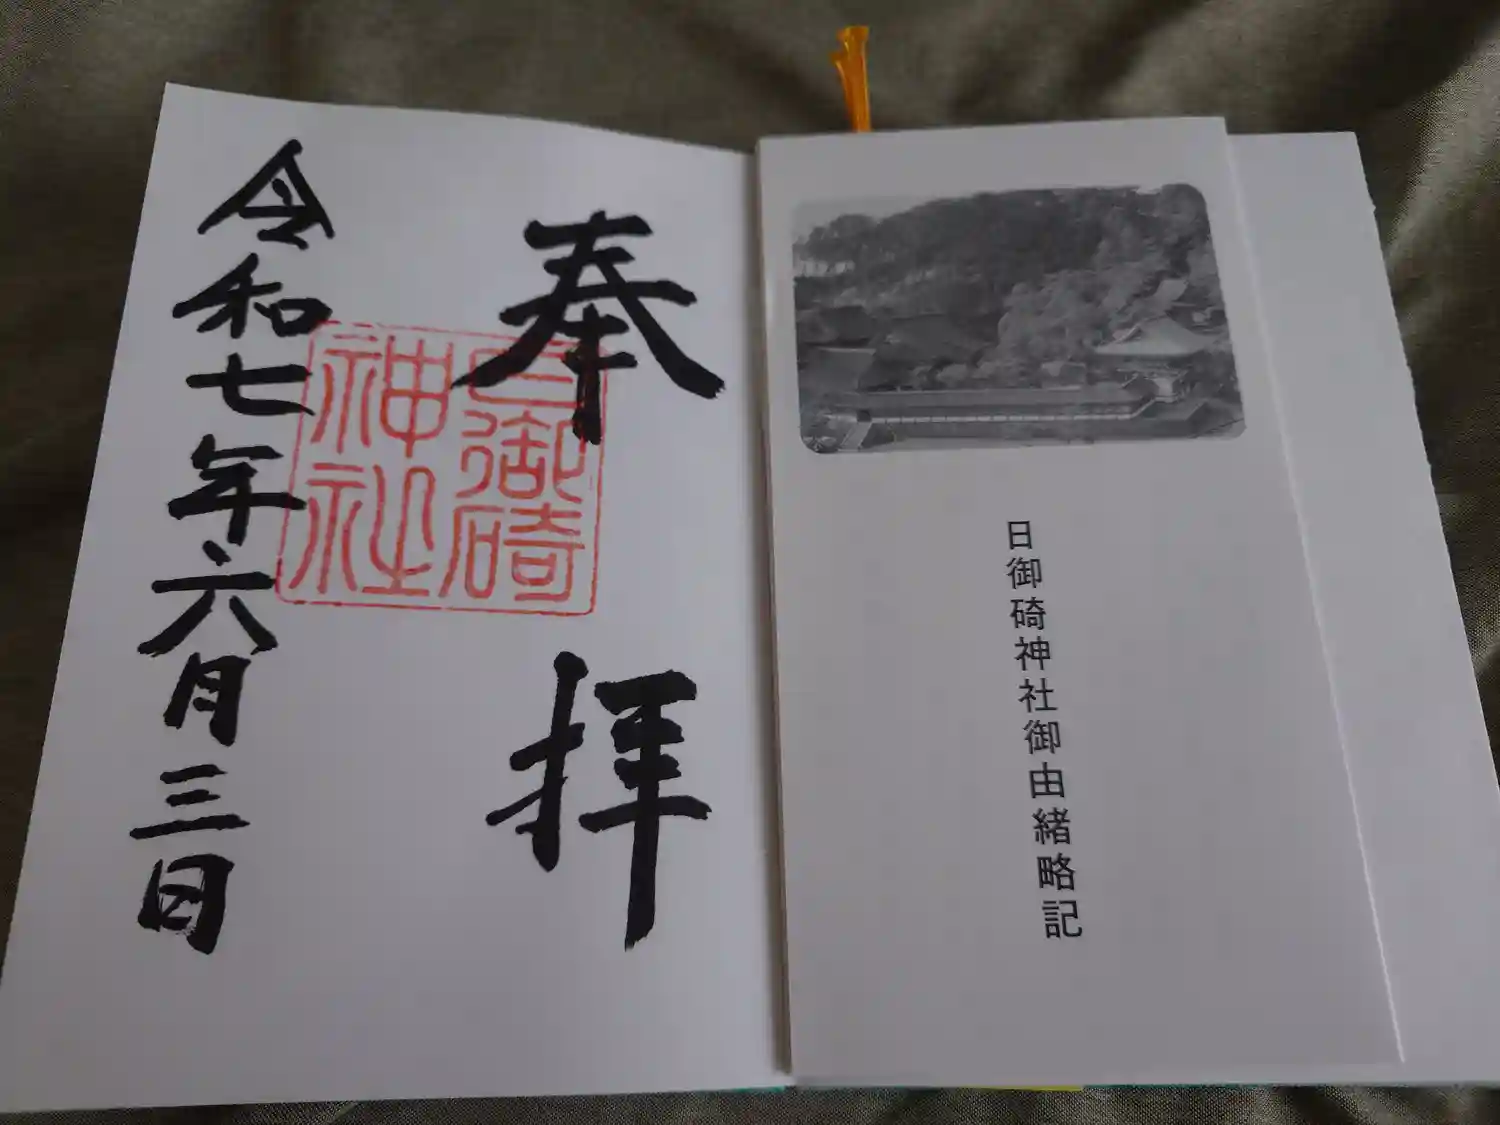 日御碕神社御由緒略記
奉拝
日御碕
神社
令和七年六月三日